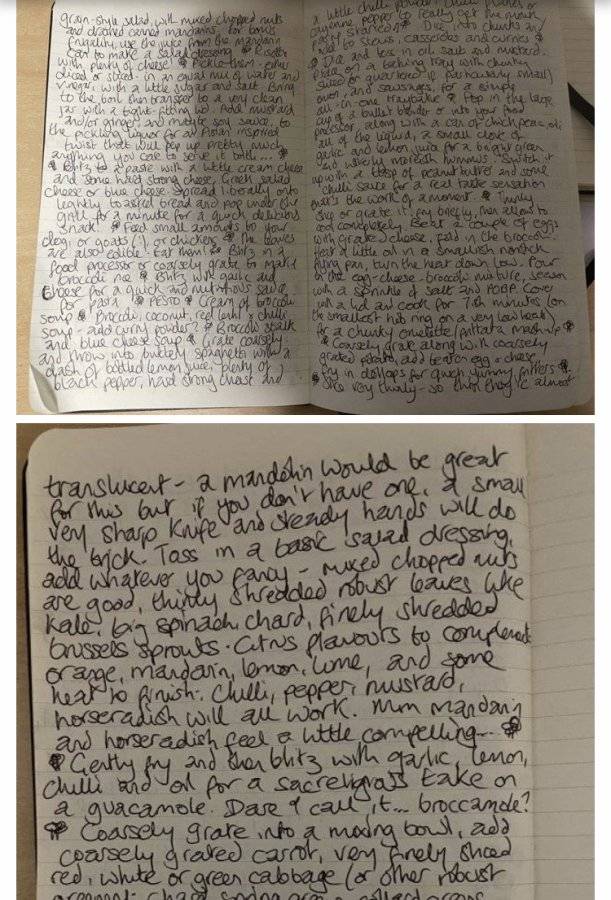 grain-style salad, with mixed chopped nuts
and drained canned mandarins, for bonus
frugality, use the juice from the mandarin
can to make a salad dressing Risotto
with plenty of cheese Pickle them - either
diced or sliced - in an equal mix of water and
vinegar, with a little sugar and salt. Bring
to the boil then transfer to a very clean
jar with a tight-fitting lid. Add mustard
and/or ginger and maybe soy sauce, to
the pickling liquor for an Asian inspired
twist that will pep up pretty much
anything you care to serve it with...
Blitz to a paste with a little cream cheese
and some hard strong cheese, Greek salad
cheese or blue cheese. Spread liberally onto
lightly toasted bread and pop under the
grill for a minute for a quick delicious
snack! Feed small amounts to your
dog, or goats(!), or chickens The leaves
are also edible! Eat them! Blitz in a
food processor or coarsely grate to make
broccoli rice Blitz with garlic and
cheese for a quick and nutritious sauce
for pasta PESTO Cream of broccoli
soup Broccoli, coconut, red lentil + chilli
soup - add curry powder? Broccoli stalk
and blue cheese soup Grate coarsely
and throw into buttery spaghetti with a
dash of bottled lemon juice, plenty of
black pepper, hard strong cheese and
a little chilli powder
cayenne pepper to really get the
party started Dice into chunks and
add to stews, casseroles and curries
Dice and toss in oil, salt and mustard.
Place on a baking tray with chunky
sliced or quartered if particularly small)
and sausages, for a simple
all-in-one traybake Pop in the large
cup of a bullet blender or into your food
processor along with a can of chickpeas,
all of the liquid, a small clove of
garlic and lemon juice for a bright green
and utterly moreish hummus. Switch it
up with a tbsp of peanut butter and some
chilli sauce for a real taste sensation
that's the work of a moment Thinly
slice or grate it, fry briefly, then allow to
cool completely. Beat a couple of eggs
with grated cheese, fold in the broccoli.
Heat a little oil in a smallish nonstick
frying pan, turn the heat down low. Pour
in the egg-cheese-broccoli mixture, season
with a sprinkle of salt and pepper. Cover
with a lid and cook for 7-8 minutes (on
the smallest hob ring on a very low heat)
for a chunky omelette/frittata mashup
Coarsely grate along with coarsely
grated potato, add beaten egg + cheese
fry in dollops for quick yummy fritters
Slice very thinly - so thin they're almost
translucent - a mandolin would be great
for this but if you don't have one, a small
very sharp knife and steady hands will do
the trick. Toss in a basic salad dressing,
add whatever you fancy - mixed chopped nuts
are good, thinly shredded robust leaves like
kale, big spinach, chard, finely shredded
brussels sprouts. Citrus flavours to complement
orange, mandarin, lemon, lime, and some
heat to finish. Chilli, pepper, mustard,
horseradish will all work. Mm mandarin
and horseradish feel a little compelling...
Gently fry and then blitz with garlic, lemon,
chilli and oil for a sacreligious take on
a guacamole. Dare I call it... broccamole?
Coarsely grate into a mixing bowl, add
coarsely grated carrot, very finely sliced
red, white or green cabbage (or other robust
greenery: chard, spring greens, collard greens